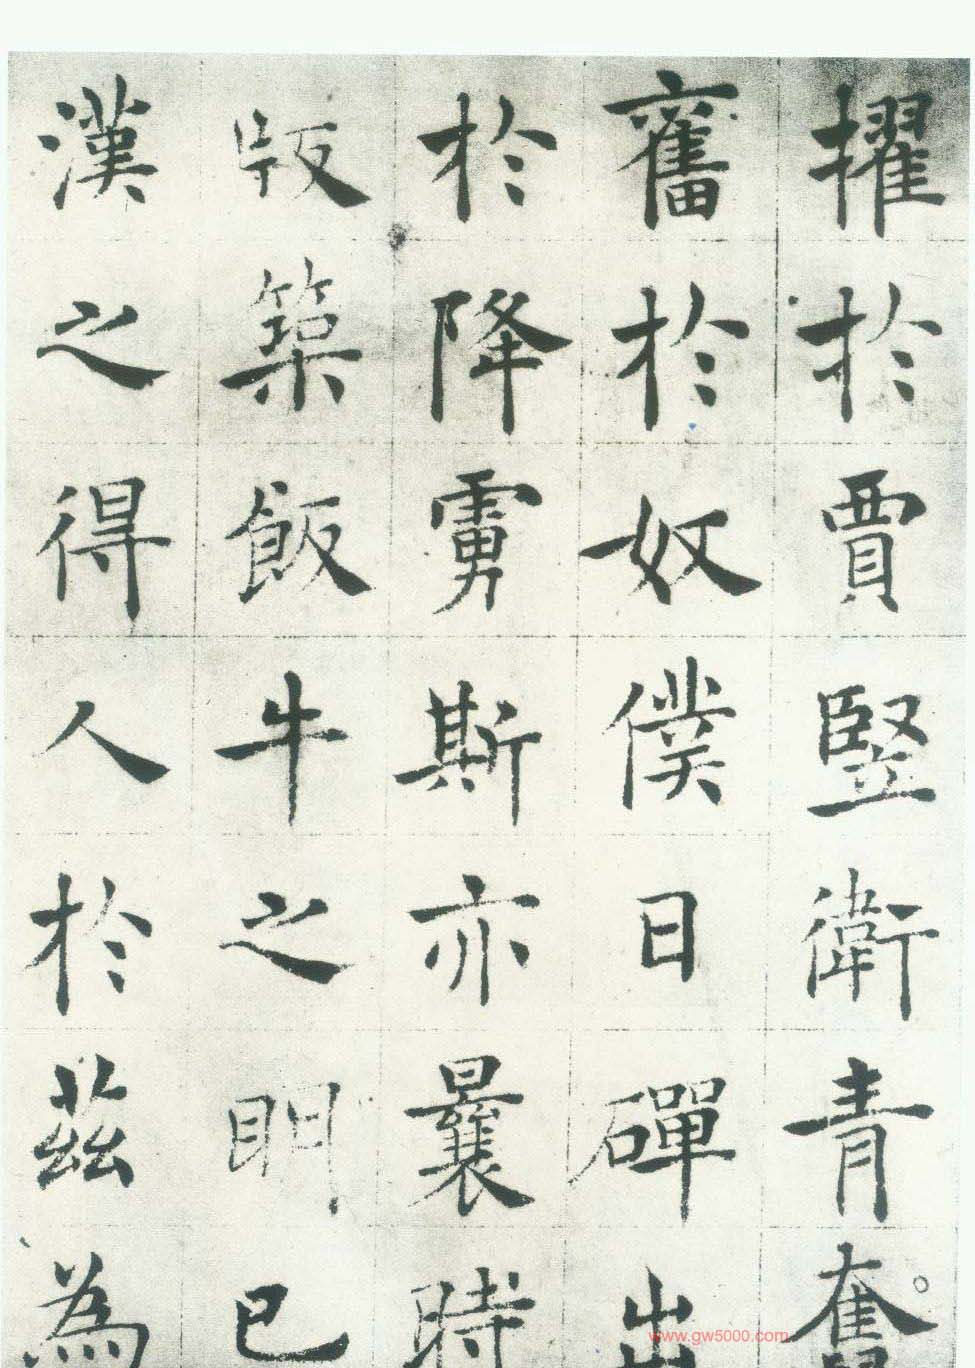 擢於賈豎衛青奮
奮於奴僕日磾出
於降虜斯亦曩時
版築飯牛之朙已
漢之得人於茲為
www.gw5000.com